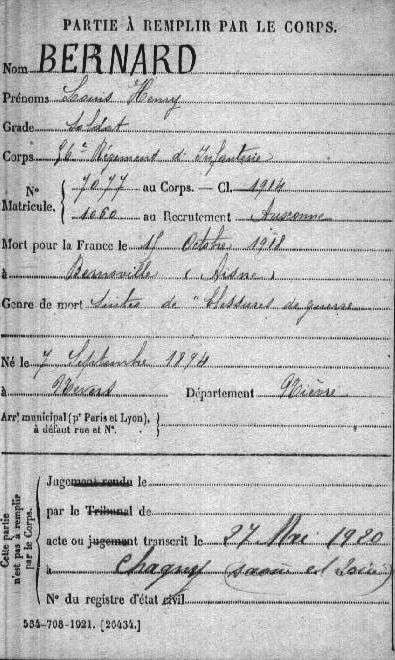 PARTIE À REMPLIR PAR LE CORPS.
Nom BERNARD
Prénoms Louis Henry
Grade Soldat
Corps Régiment d'Infanterie
N° Matricule. { 7077 au Corps. — Cl. 1914
1060 au Recrutement Auxonne
Mort pour la France le 15 Octobre 1918
à Bernoville (Aisne)
Genre de mort Suites de "blessures de guerre
Né le 7 Septembre 1894
à Nevers Département Nièvre
Arrt municipal (pr Paris et Lyon),
à défaut rue et N°.
Cette partie n'est pas à remplir par le Corps.
Jugement rendu le
par le Tribunal de
acte ou jugement transcrit le 27 Mai 1920
à Chagny (Saône et Loire)
N° du registre d'état civil
534-708-1921. [26434.]